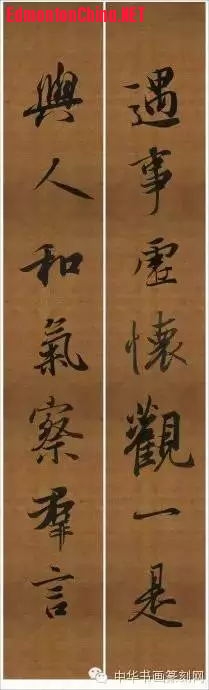 EdmontonChina.NET
遇事虛懷觀一是
與人和氣察羣言
中华书画篆刻网